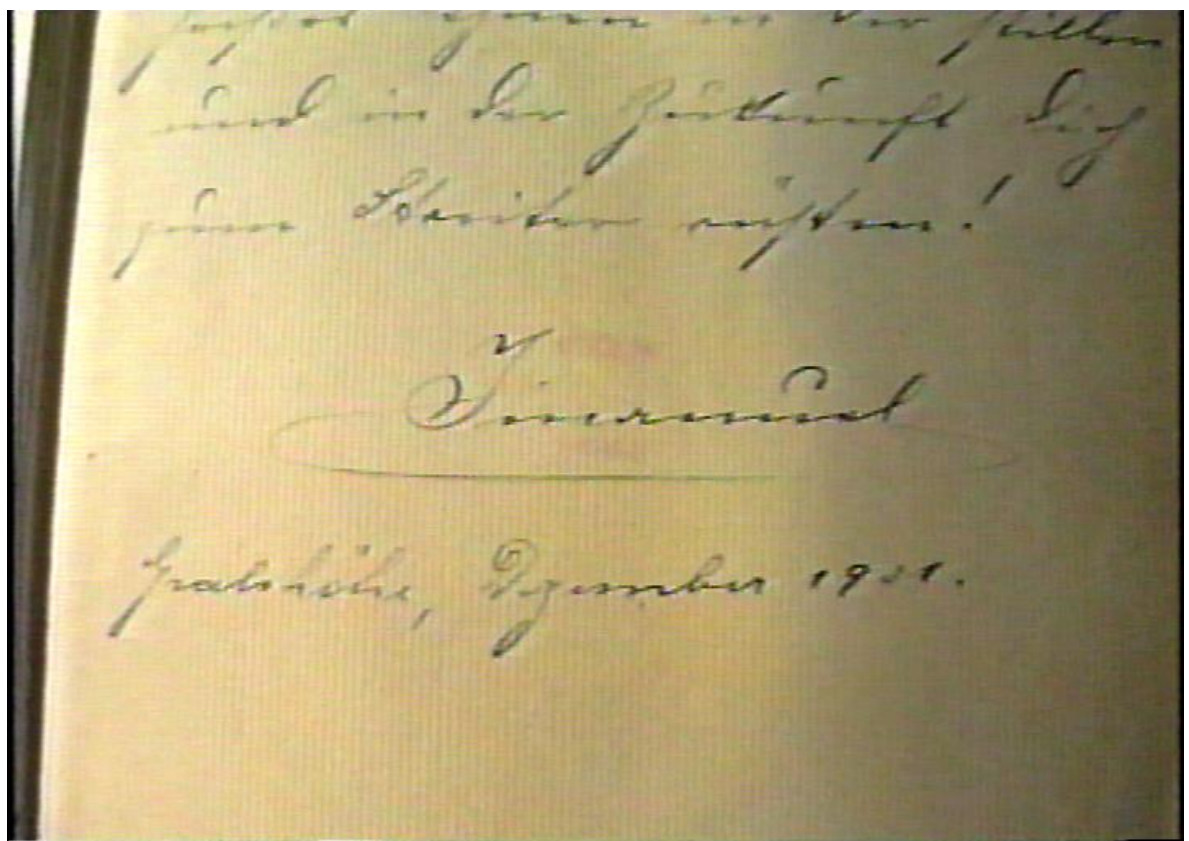 in der Stillen
und in der Zukunft dich
zum Streiter rüsten!
Imanuel
Gralshöhe, Dezember 1931.